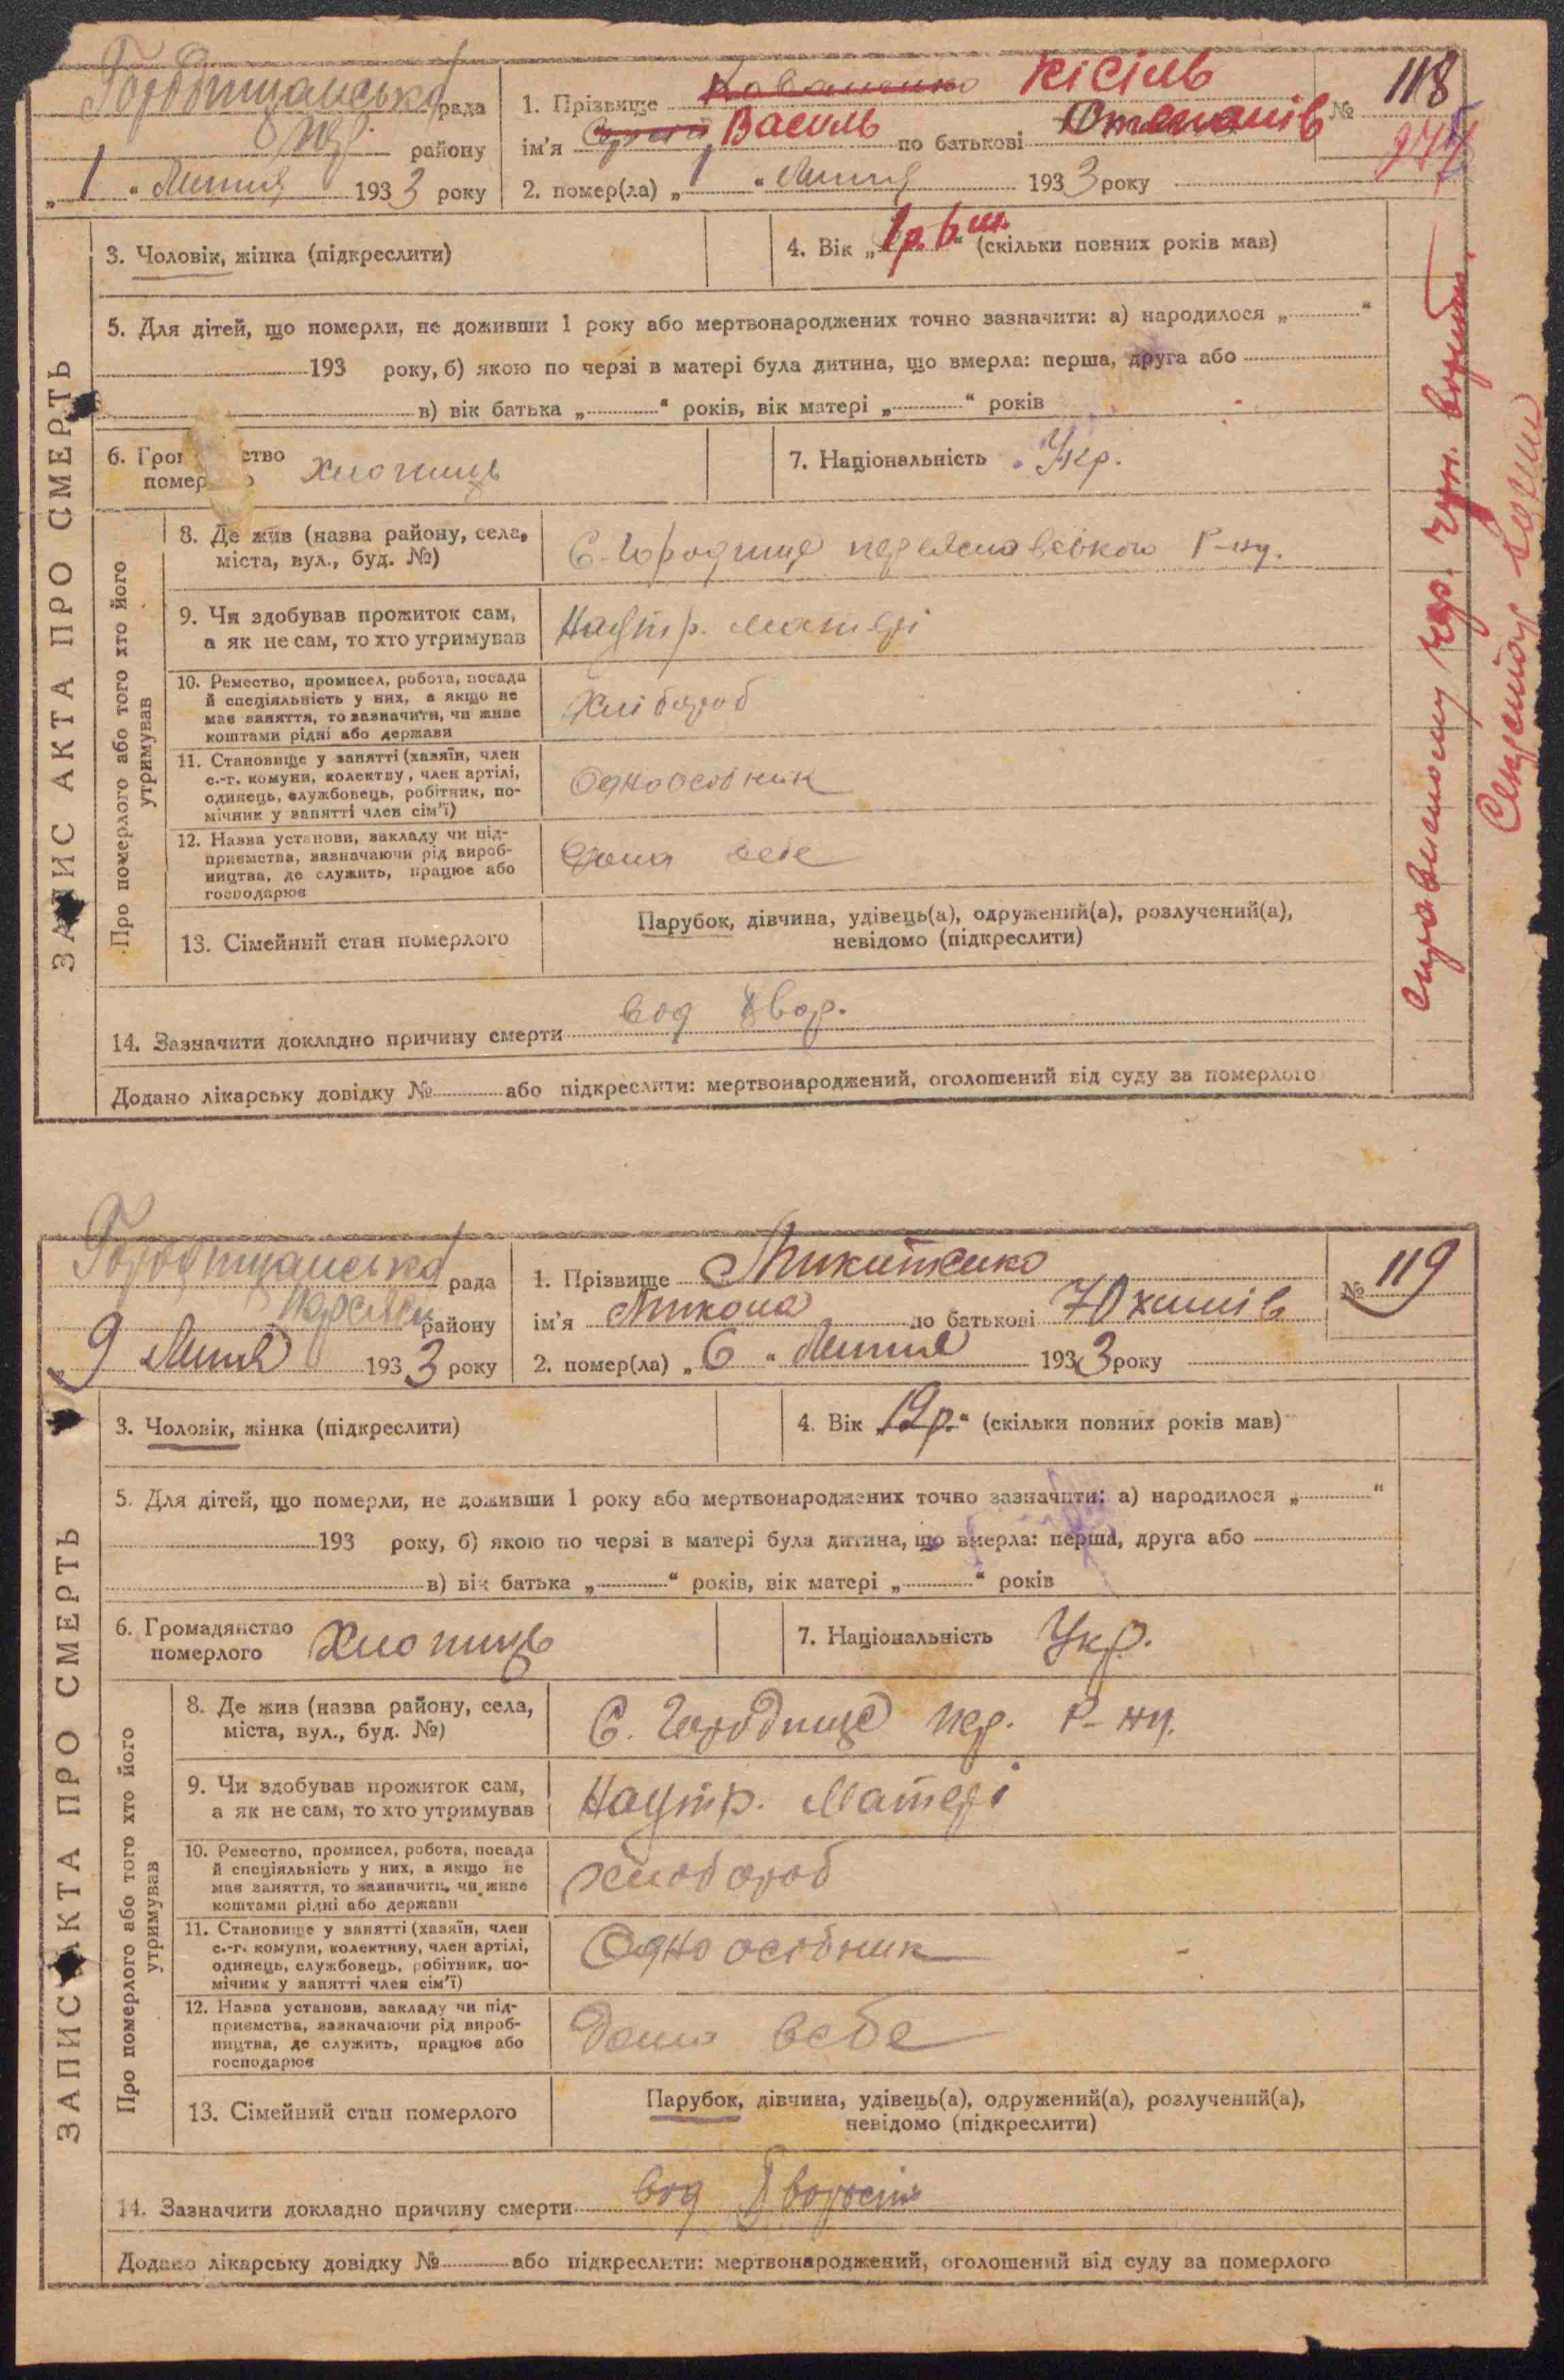 Городищанська рада
Пер. району
„ 1 “ Липня 1933 року
1. Прізвище Коваленко Кісіль
ім'я Василь по батькові Степанів
№ 118
2. помер(ла) „ 1 “ Липня 1933 року
3. Чоловік, жінка (підкреслити)
4. Вік „ 1 р. 6 м. “ (скільки повних років мав)
5. Для дітей, що померли, не доживши 1 року або мертвонароджених точно зазначити: а) народилося „ “
193 року, б) якою по черзі в матері була дитина, що вмерла: перша, друга або
в) вік батька „ “ років, вік матері „ “ років
6. Гро ство
помер о
хлопиць
7. Національність Укр.
ЗАПИС АКТА ПРО СМЕРТЬ
Про померлого або того хто його
утримував
8. Де жив (назва району, села,
міста, вул., буд. №)
С. Городище переяславського Р-ну.
9. Чи здобував прожиток сам,
а як не сам, то хто утримував
Наутр. матері
10. Ремество, промисел, робота, посада
й спеціяльність у них, а якщо не
має заняття, то зазначити, чи живе
коштами рідні або держави
Хлібороб
11. Становище у занятті (хазяїн, член
с.-г. комуни, колективу, член артілі,
одинець, службовець, робітник, по-
мічник у занятті член сім'ї)
Одноосібник
12. Назва установи, закладу чи під-
приємства, зазначаючи рід вироб-
ництва, де служить, працює або
господарює
Дома себе
13. Сімейний стан померлого
Парубок, дівчина, удівець(а), одружений(а), розлучений(а),
невідомо (підкреслити)
14. Зазначити докладно причину смерти
вод хвор.
Додано лікарську довідку № або підкреслити: мертвонароджений, оголошений від суду за померлого
Городищанська рада
Переясл. району
„ 9 Липня 1933 року
1. Прізвище Микитенко
ім'я Микола по батькові Юхимів
№ 119
2. помер(ла) „ 6 “ Липня 1933 року
3. Чоловік, жінка (підкреслити)
4. Вік „ 12 р. “ (скільки повних років мав)
5. Для дітей, що померли, не доживши 1 року або мертвонароджених точно зазначити: а) народилося „ “
193 року, б) якою по черзі в матері була дитина, що вмерла: перша, друга або
в) вік батька „ “ років, вік матері „ “ років
6. Громадянство
померлого
Хлопиць
7. Національність Укр.
ЗАПИС АКТА ПРО СМЕРТЬ
Про померлого або того хто його
утримував
8. Де жив (назва району, села,
міста, вул., буд. №)
С. Городище пер. Р-ну.
9. Чи здобував прожиток сам,
а як не сам, то хто утримував
Наутр. Матері
10. Ремество, промисел, робота, посада
й спеціяльність у них, а якщо не
має заняття, то зазначити, чи живе
коштами рідні або держави
хлібороб
11. Становище у занятті (хазяїн, член
с.-г. комуни, колективу, член артілі,
одинець, службовець, робітник, по-
мічник у занятті член сім'ї)
Одноосібник
12. Назва установи, закладу чи під-
приємства, зазначаючи рід вироб-
ництва, де служить, працює або
господарює
Дома всебе
13. Сімейний стан померлого
Парубок, дівчина, удівець(а), одружений(а), розлучений(а),
невідомо (підкреслити)
14. Зазначити докладно причину смерти
вод хворости
Додано лікарську довідку № або підкреслити: мертвонароджений, оголошений від суду за померлого